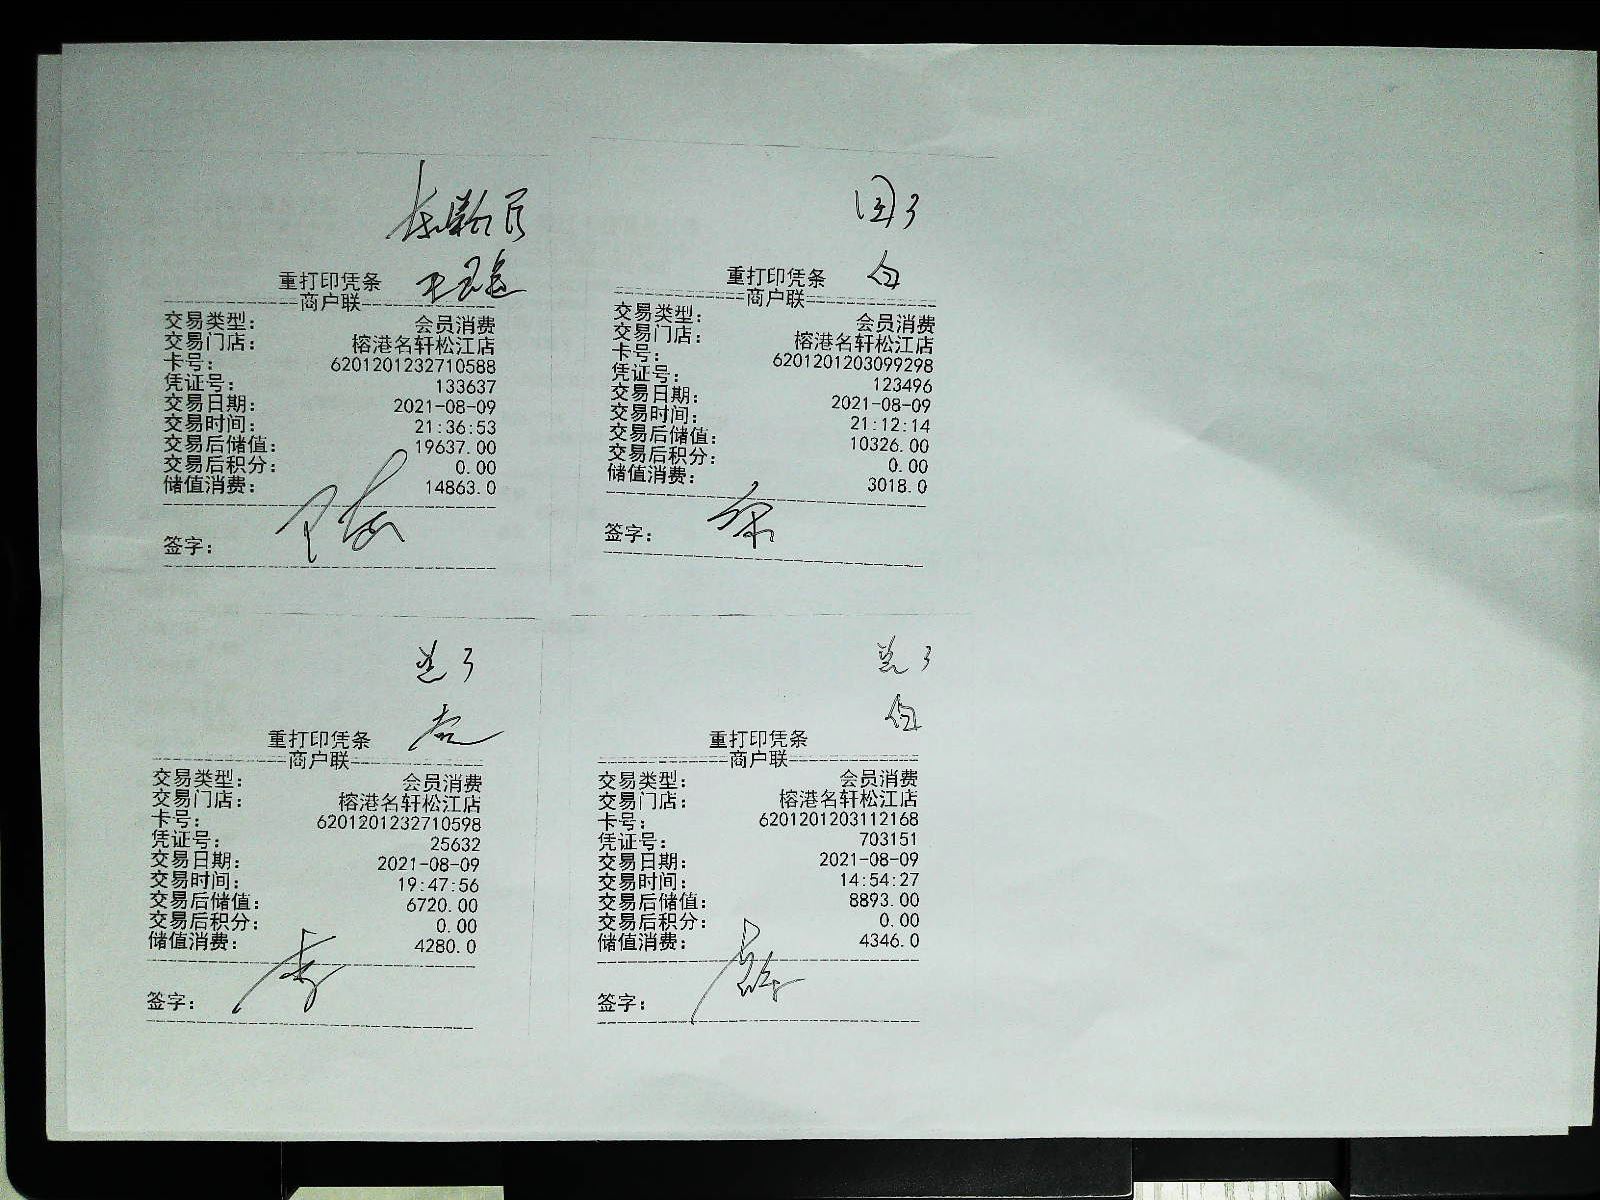 重打印凭条
商户联
交易类型： 会员消费
交易门店： 榕港名轩松江店
卡号： 6201201232710588
凭证号： 133637
交易日期： 2021-08-09
交易时间： 21:36:53
交易后储值： 19637.00
交易后积分： 0.00
储值消费： 14863.0
签字：
重打印凭条
商户联
交易类型： 会员消费
交易门店： 榕港名轩松江店
卡号： 6201201203099298
凭证号： 123496
交易日期： 2021-08-09
交易时间： 21:12:14
交易后储值： 10326.00
交易后积分： 0.00
储值消费： 3018.0
签字：
重打印凭条
商户联
交易类型： 会员消费
交易门店： 榕港名轩松江店
卡号： 6201201232710598
凭证号： 25632
交易日期： 2021-08-09
交易时间： 19:47:56
交易后储值： 6720.00
交易后积分： 0.00
储值消费： 4280.0
签字：
重打印凭条
商户联
交易类型： 会员消费
交易门店： 榕港名轩松江店
卡号： 6201201203112168
凭证号： 703151
交易日期： 2021-08-09
交易时间： 14:54:27
交易后储值： 8893.00
交易后积分： 0.00
储值消费： 4346.0
签字：